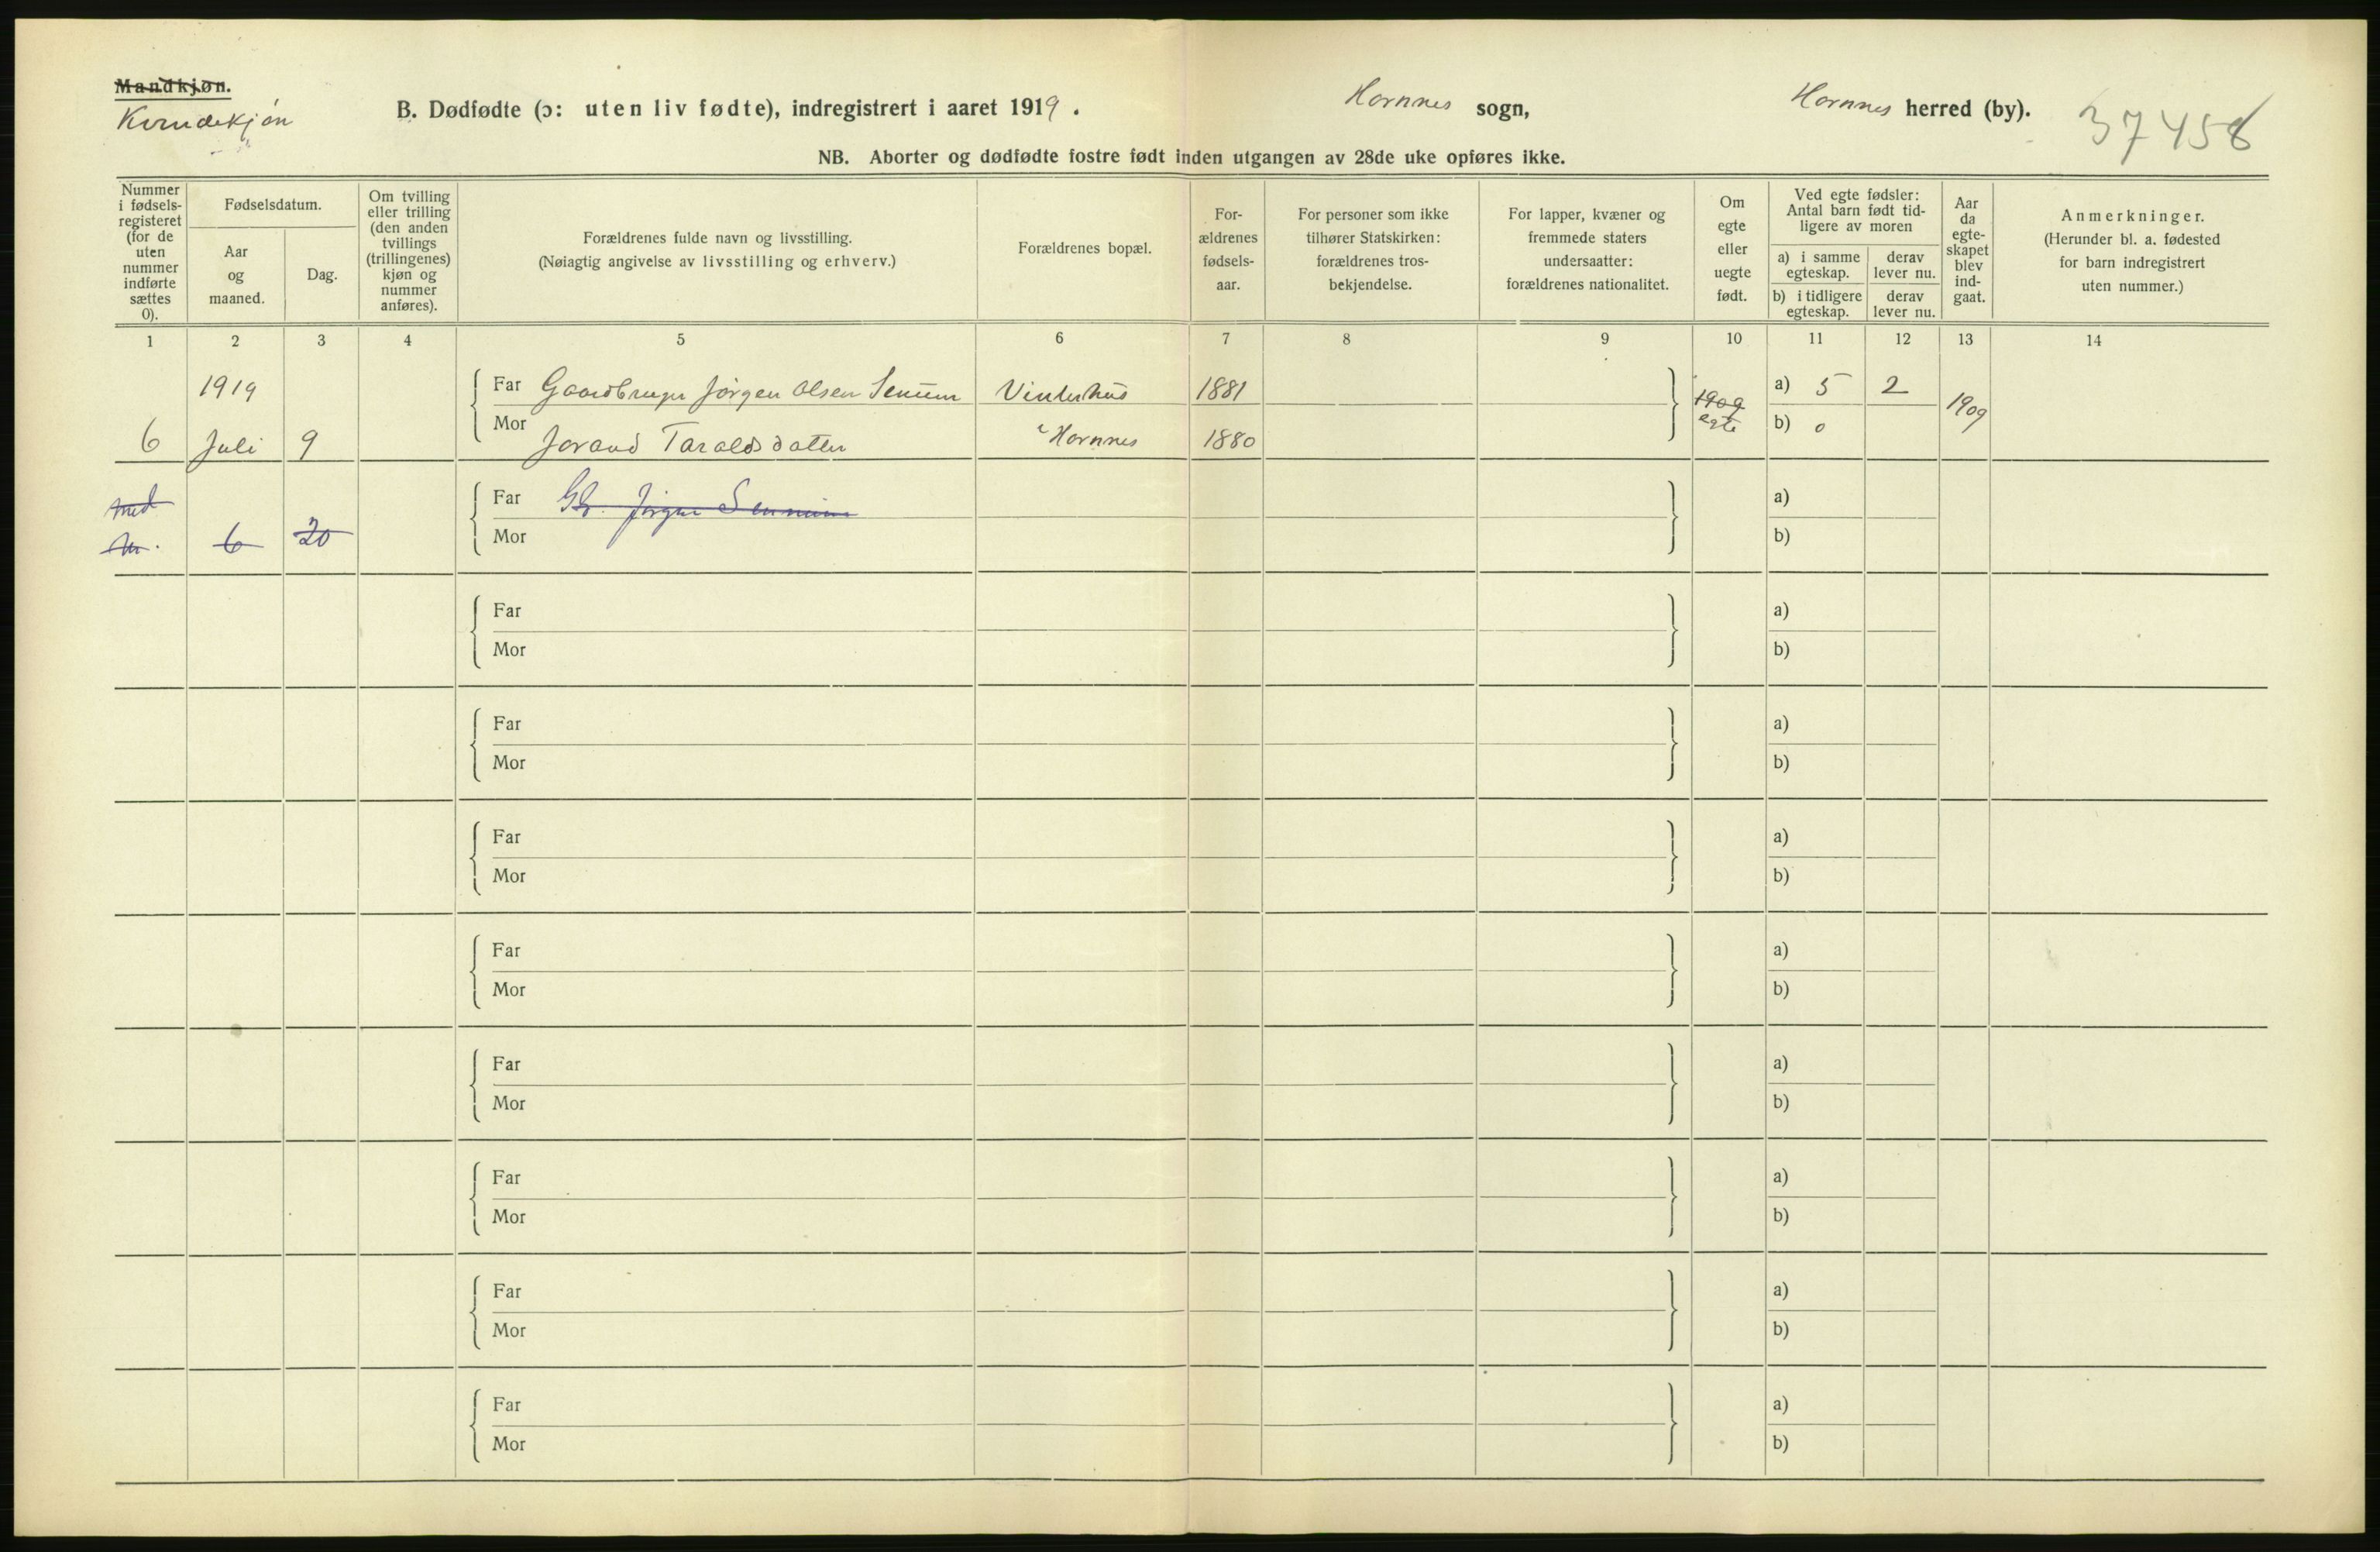 Mandkjøn.
Kvindekjøn
B. Dødfødte (ɔ: uten liv fødte), indregistrert i aaret 1919. Hornnes sogn, Hornnes herred (by). 37458
NB. Aborter og dødfødte fostre født inden utgangen av 28de uke opføres ikke.
Nummer
i fødsels-
registeret
(for de
uten
nummer
indførte
sættes
0).
Fødselsdatum.
Aar
og
maaned.
Dag.
Om tvilling
eller trilling
(den anden
tvillings
(trillingenes)
kjøn og
nummer
anføres).
Forældrenes fulde navn og livsstilling.
(Nøiagtig angivelse av livsstilling og erhverv.)
Forældrenes bopæl.
For-
ældrenes
fødsels-
aar.
For personer som ikke
tilhører Statskirken:
forældrenes tros-
bekjendelse.
For lapper, kvæner og
fremmede staters
undersaatter:
forældrenes nationalitet.
Om
egte
eller
uegte
født.
Ved egte fødsler:
Antal barn født tid-
ligere av moren
a) i samme
egteskap.
derav
lever nu.
b) i tidligere
egteskap.
derav
lever nu.
Aar
da
egte-
skapet
blev
ind-
gaat.
Anmerkninger.
(Herunder bl. a. fødested
for barn indregistrert
uten nummer.)
1 2 3 4 5 6 7 8 9 10 11 12 13 14
1919 Far Gaardbruger Jørgen Olsen Senum Vinterhus 1881 1909 a) 5 2 1909
6 Juli 9 Mor Jorand Taraldsdatter i Hornnes 1880 egte b) 0
med Far Gb. Jørgen Sennum a)
6 20 Mor b)
Far a)
Mor b)
Far a)
Mor b)
Far a)
Mor b)
Far a)
Mor b)
Far a)
Mor b)
Far a)
Mor b)
Far a)
Mor b)
Far a)
Mor b)